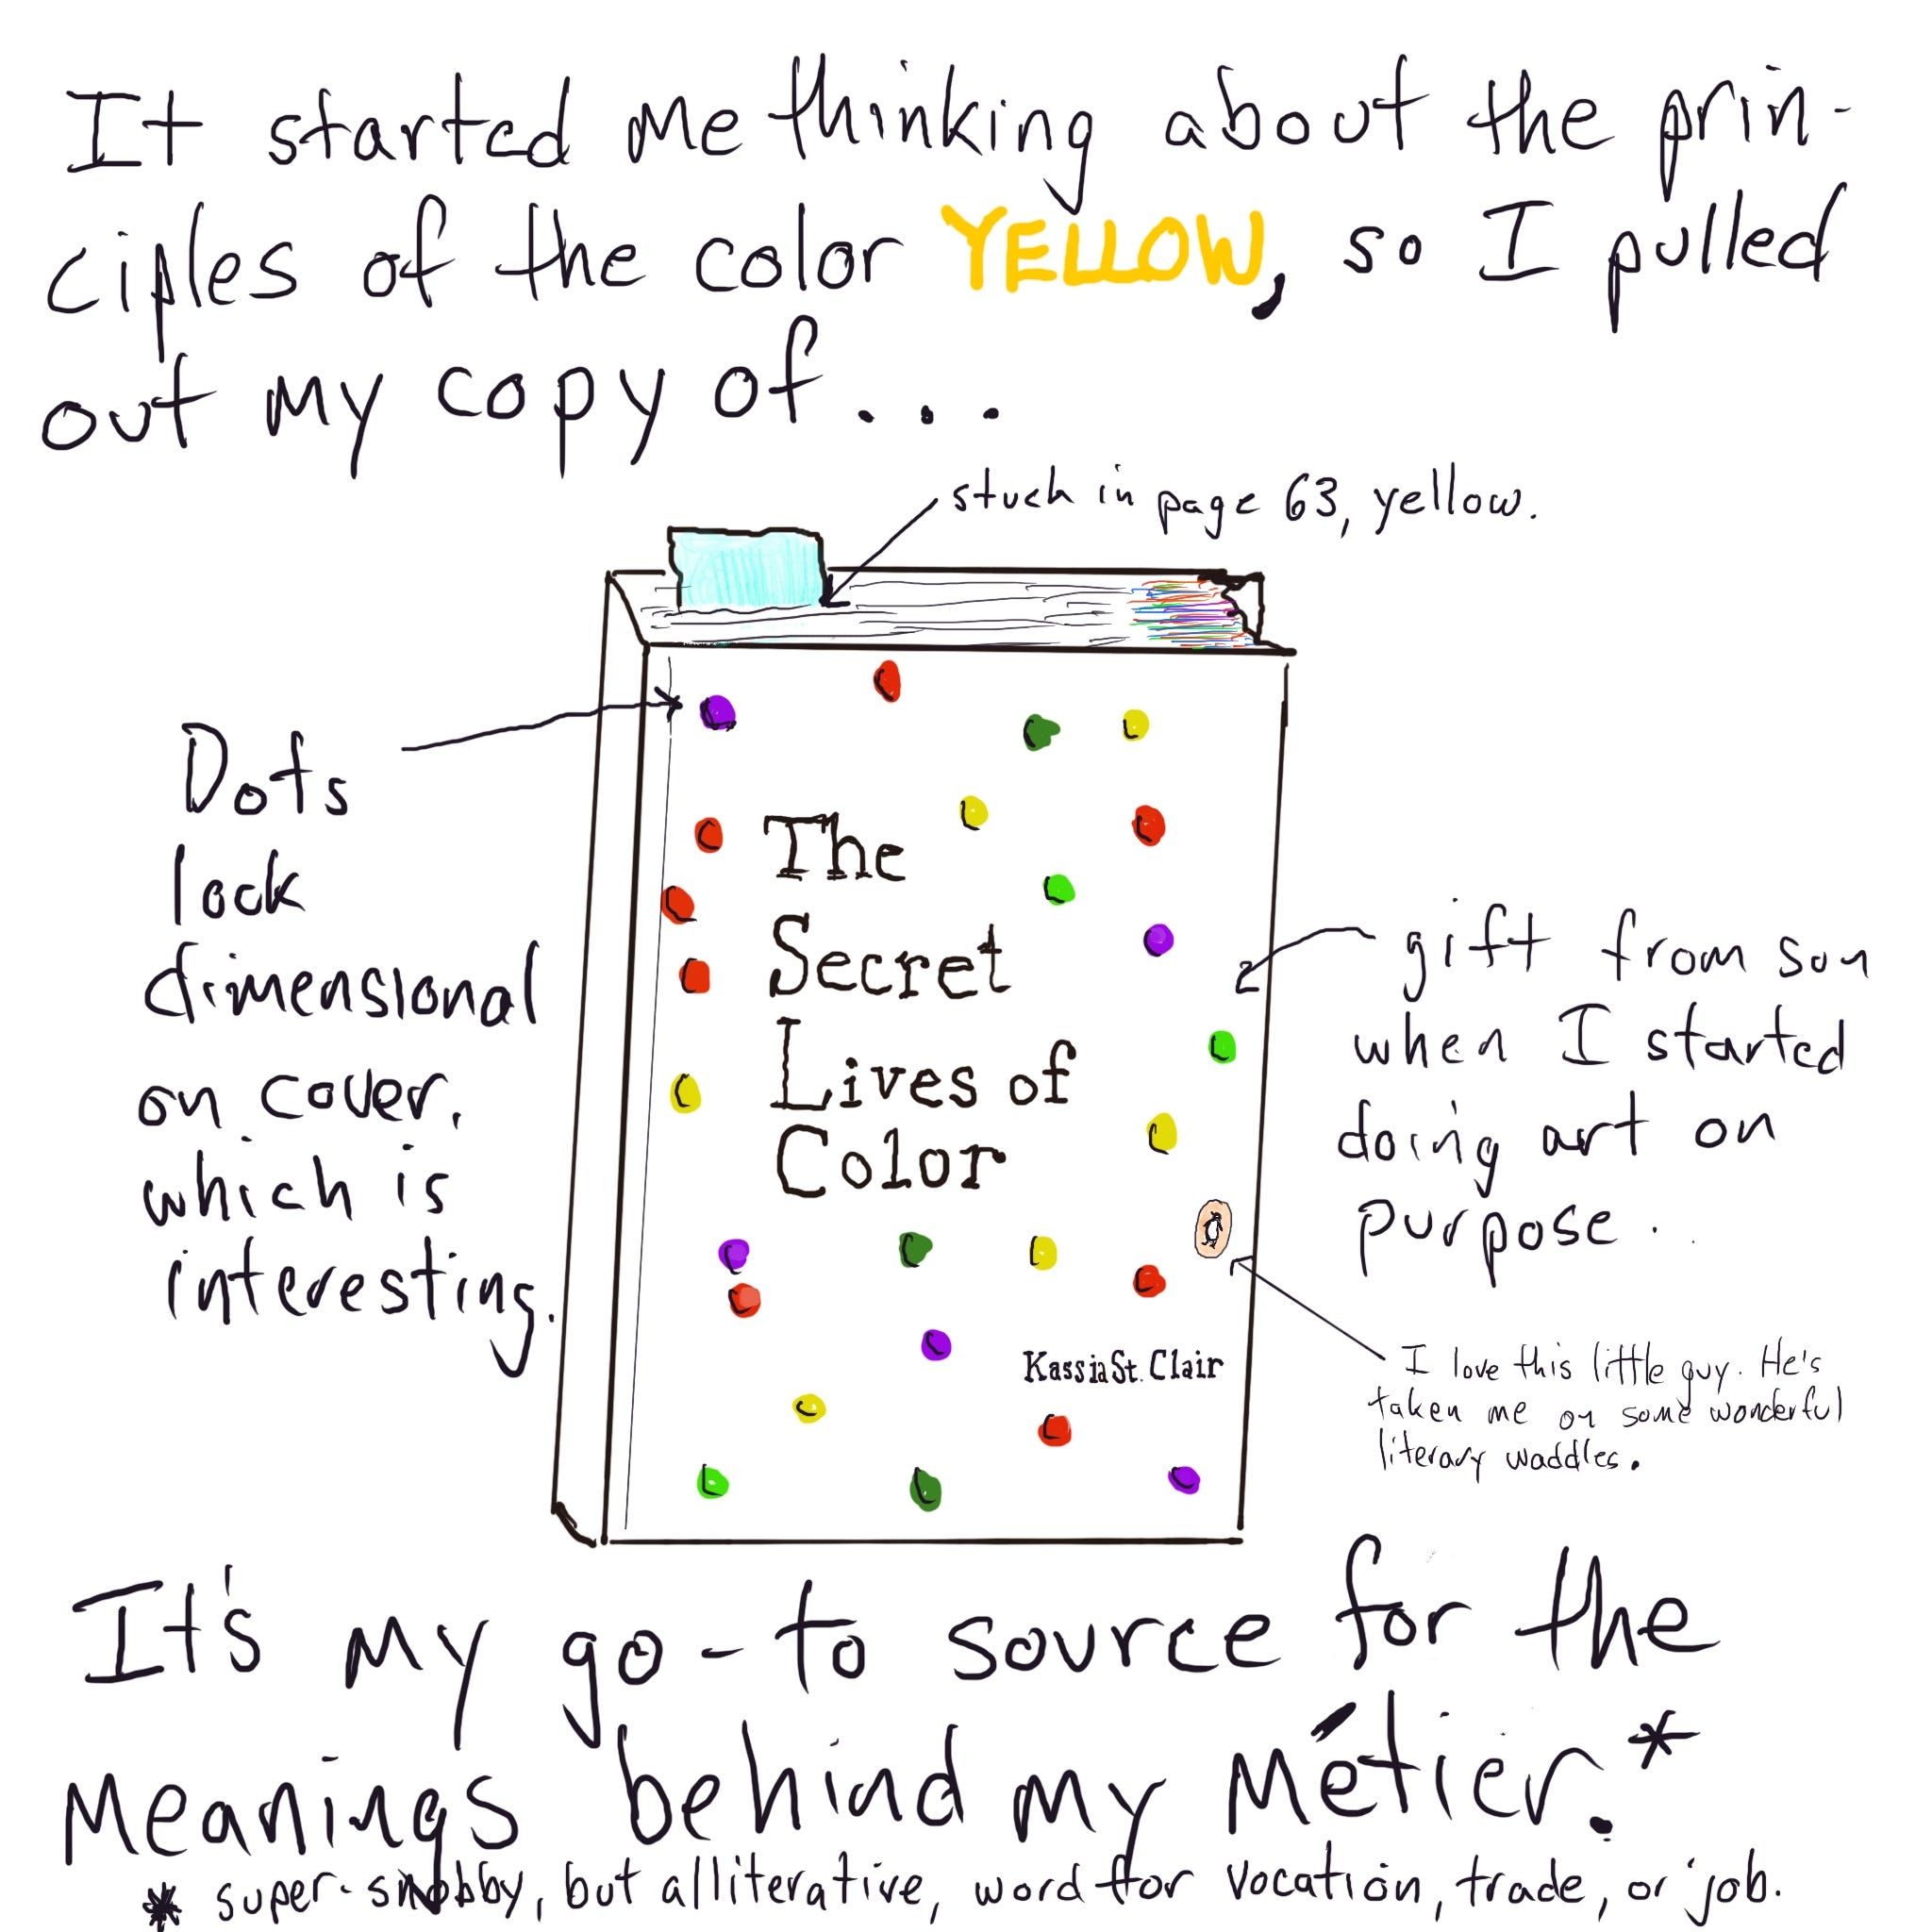 It started me thinking about the prin-
ciples of the color YELLOW, so I pulled
out my copy of...
stuck in page 63, yellow.
Dots
look
dimensional
on cover,
which is
interesting.
The
Secret
Lives of
Color
Kassia St. Clair
gift from son
when I started
doing art on
purpose.
I love this little guy. He's
taken me on some wonderful
literary waddles.
It's my go-to source for the
meanings behind my métier.*
* super-snobby, but alliterative, word for vocation, trade, or job.